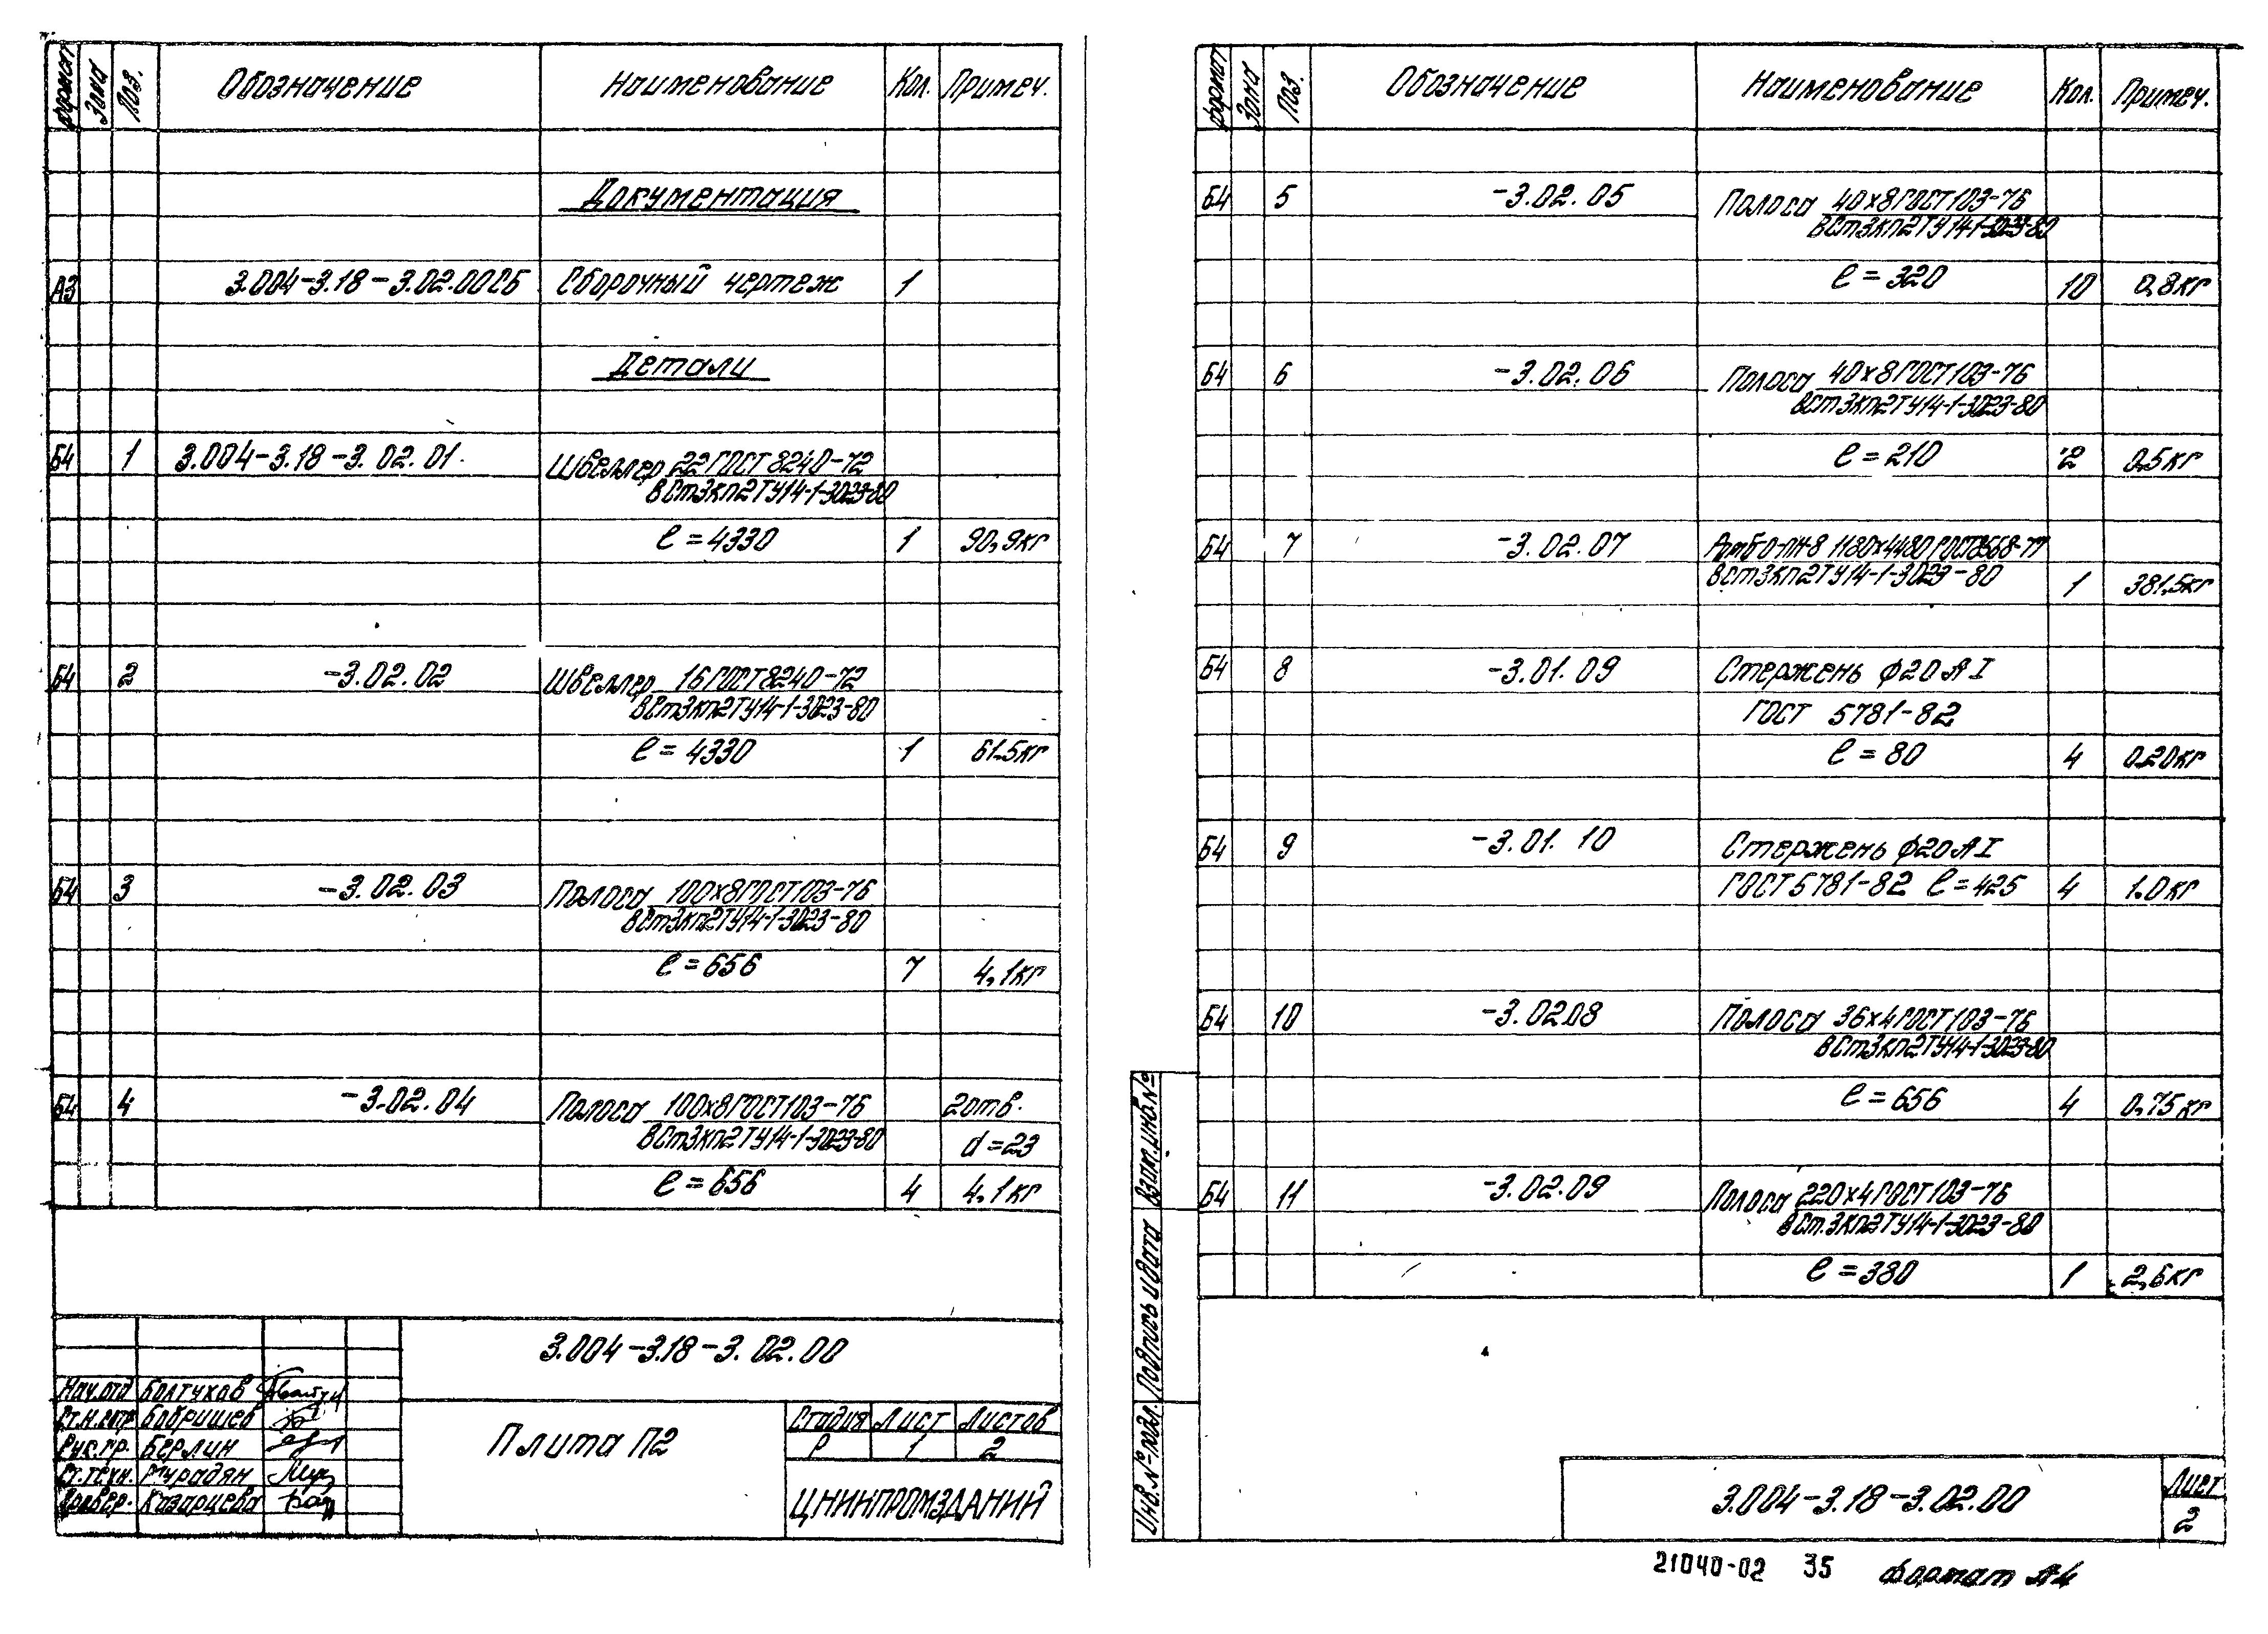 формат Зона Поз. Обозначение Наименование Кол. Примеч.
Документация
А3 3.004-3.18-3.02.00СБ Сборочный чертеж 1
Детали
Б4 1 3.004-3.18-3.02.01. Швеллер 22 ГОСТ 8240-72
ВСт3кп2ТУ14-1-3023-80
ℓ=4330 1 90,9кг
Б4 2 -3.02.02 Швеллер 16 ГОСТ 8240-72
ВСт3кп2ТУ14-1-3023-80
ℓ=4330 1 61.5кг
Б4 3 -3.02.03 Полоса 100х8 ГОСТ 103-76
ВСт3кп2ТУ14-1-3023-80
ℓ=656 7 4,1кг
Б4 4 -3.02.04 Полоса 100х8 ГОСТ 103-76 2отв.
ВСт3кп2ТУ14-1-3023-80 d=23
ℓ=656 4 4.1кг
3.004-3.18-3.02.00
Нач.отд Болтухов
Ст.н.сотр. Бобришев
Рук.гр. Берлин
Ст.техн. Мурадян
Провер. Казарцева
Плита П2
Стадия Лист Листов
Р 1 2
ЦНИИПРОМЗДАНИЙ
формат Зона Поз. Обозначение Наименование Кол. Примеч.
Б4 5 -3.02.05 Полоса 40х8 ГОСТ 103-76
ВСт3кп2ТУ14-1-3023-80
ℓ=320 10 0,8кг
Б4 6 -3.02.06 Полоса 40х8 ГОСТ 103-76
ВСт3кп2ТУ14-1-3023-80
ℓ=210 2 0.5кг
Б4 7 -3.02.07 1180х4480 ГОСТ 8568-77
ВСт3кп2ТУ14-1-3023-80 1 381,5кг
Б4 8 -3.01.09 Стержень ф20АI
ГОСТ 5781-82
ℓ=80 4 0.20кг
Б4 9 -3.01.10 Стержень ф20АI
ГОСТ 5781-82 ℓ=425 4 1.0кг
Б4 10 -3.02.08 Полоса 36х4 ГОСТ 103-76
ВСт3кп2ТУ14-1-3023-80
ℓ=656 4 0.75кг
Б4 11 -3.02.09 Полоса 220х4 ГОСТ 103-76
ВСт.3кп2ТУ14-1-3023-80
ℓ=380 1 2,6кг
Инв.№ подл. Подпись и дата Взам.инв.№
3.004-3.18-3.02.00
Лист
2
21040-02 35 формат А4